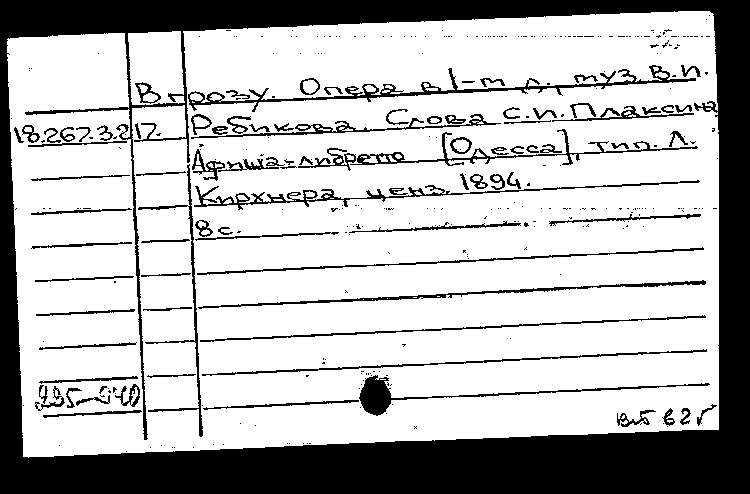 В грозу. Опера в 1-м д., муз. В.И.
18.267.3.217. Ребикова. Слова С.И. Плаксина
Афиша-либретто [Одесса], тип. Л.
Кирхнера, ценз. 1894.
8 с.
295-940
62 г